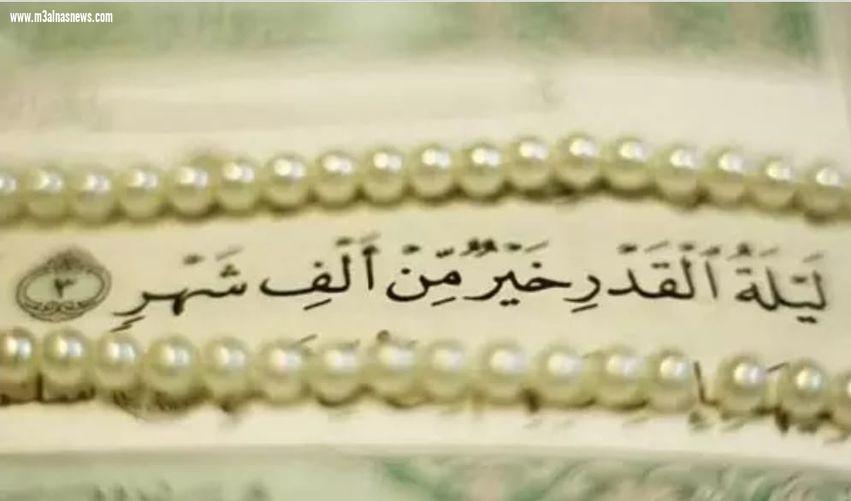 www.m3alnasnews.com
لَيْلَةُ ٱلْقَدْرِ خَيْرٌ مِّنْ أَلْفِ شَهْرٍ ٣